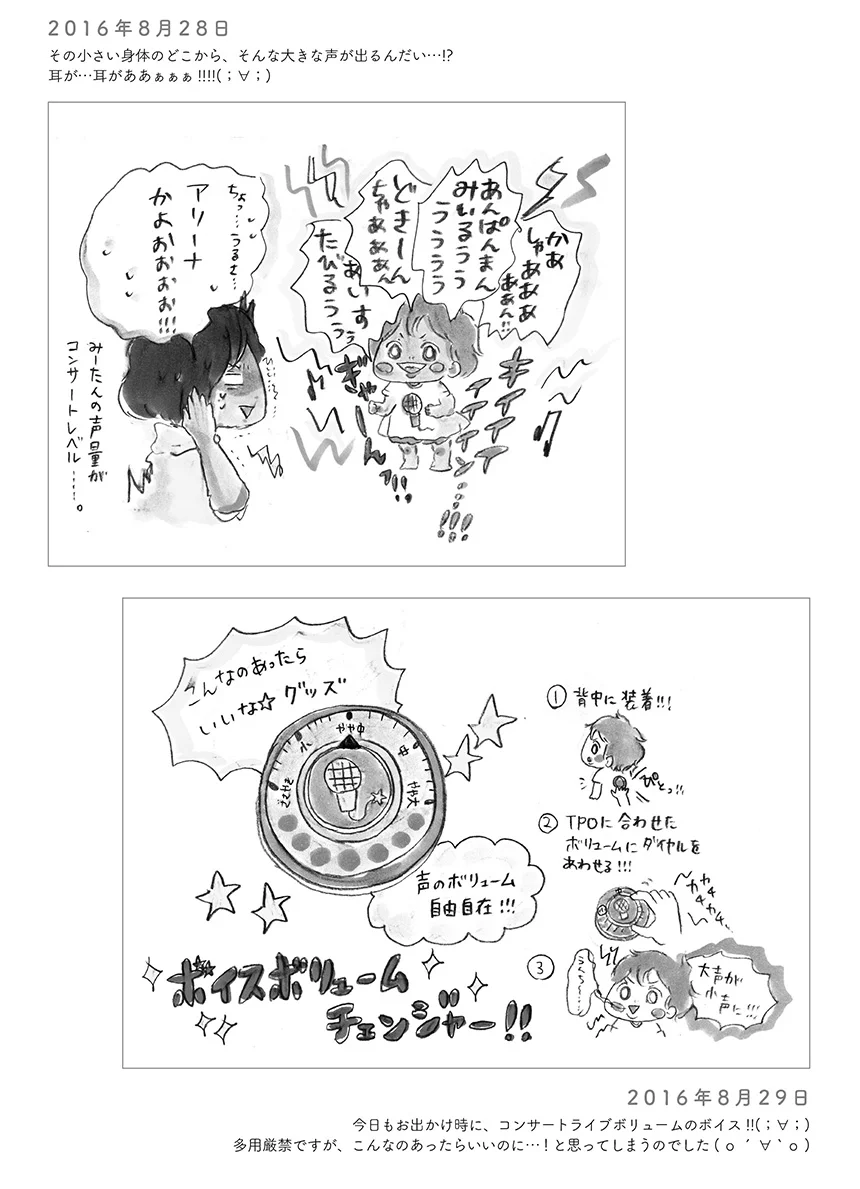 2016年8月28日
その小さい身体のどこから、そんな大きな声が出るんだい…!?
耳が…耳がああぁぁぁ!!!!(；∀；)
かあ
しゃあああ
ああん!!
あんぱんまん
みぃるうう
うううう
どきーん
ちゃあああん
あいすぅ
たびるうう
ちょっ…うるさ…
アリーナ
かよぉぉぉぉぉ!!!
みーたんの声量が
コンサートレベル……。
ぎゃーーんっ!!
キイイイイ
イイイイン……!!!
こんなのあったら
いいな☆グッズ
小
やや中
中
やや大
声のボリューム
自由自在!!!
ボイスボリューム
チェンジャー!!
① 背中に装着!!!
ぴとっ!!
② TPOに合わせた
ボリュームにダイヤルを
あわせる!!!
カチカチカチ…
③
大声が
小声に!!!
2016年8月29日
今日もお出かけ時に、コンサートライブボリュームのボイス!!(；∀；)
多用厳禁ですが、こんなのあったらいいのに…！と思ってしまうのでした(ｏ´∀`ｏ)